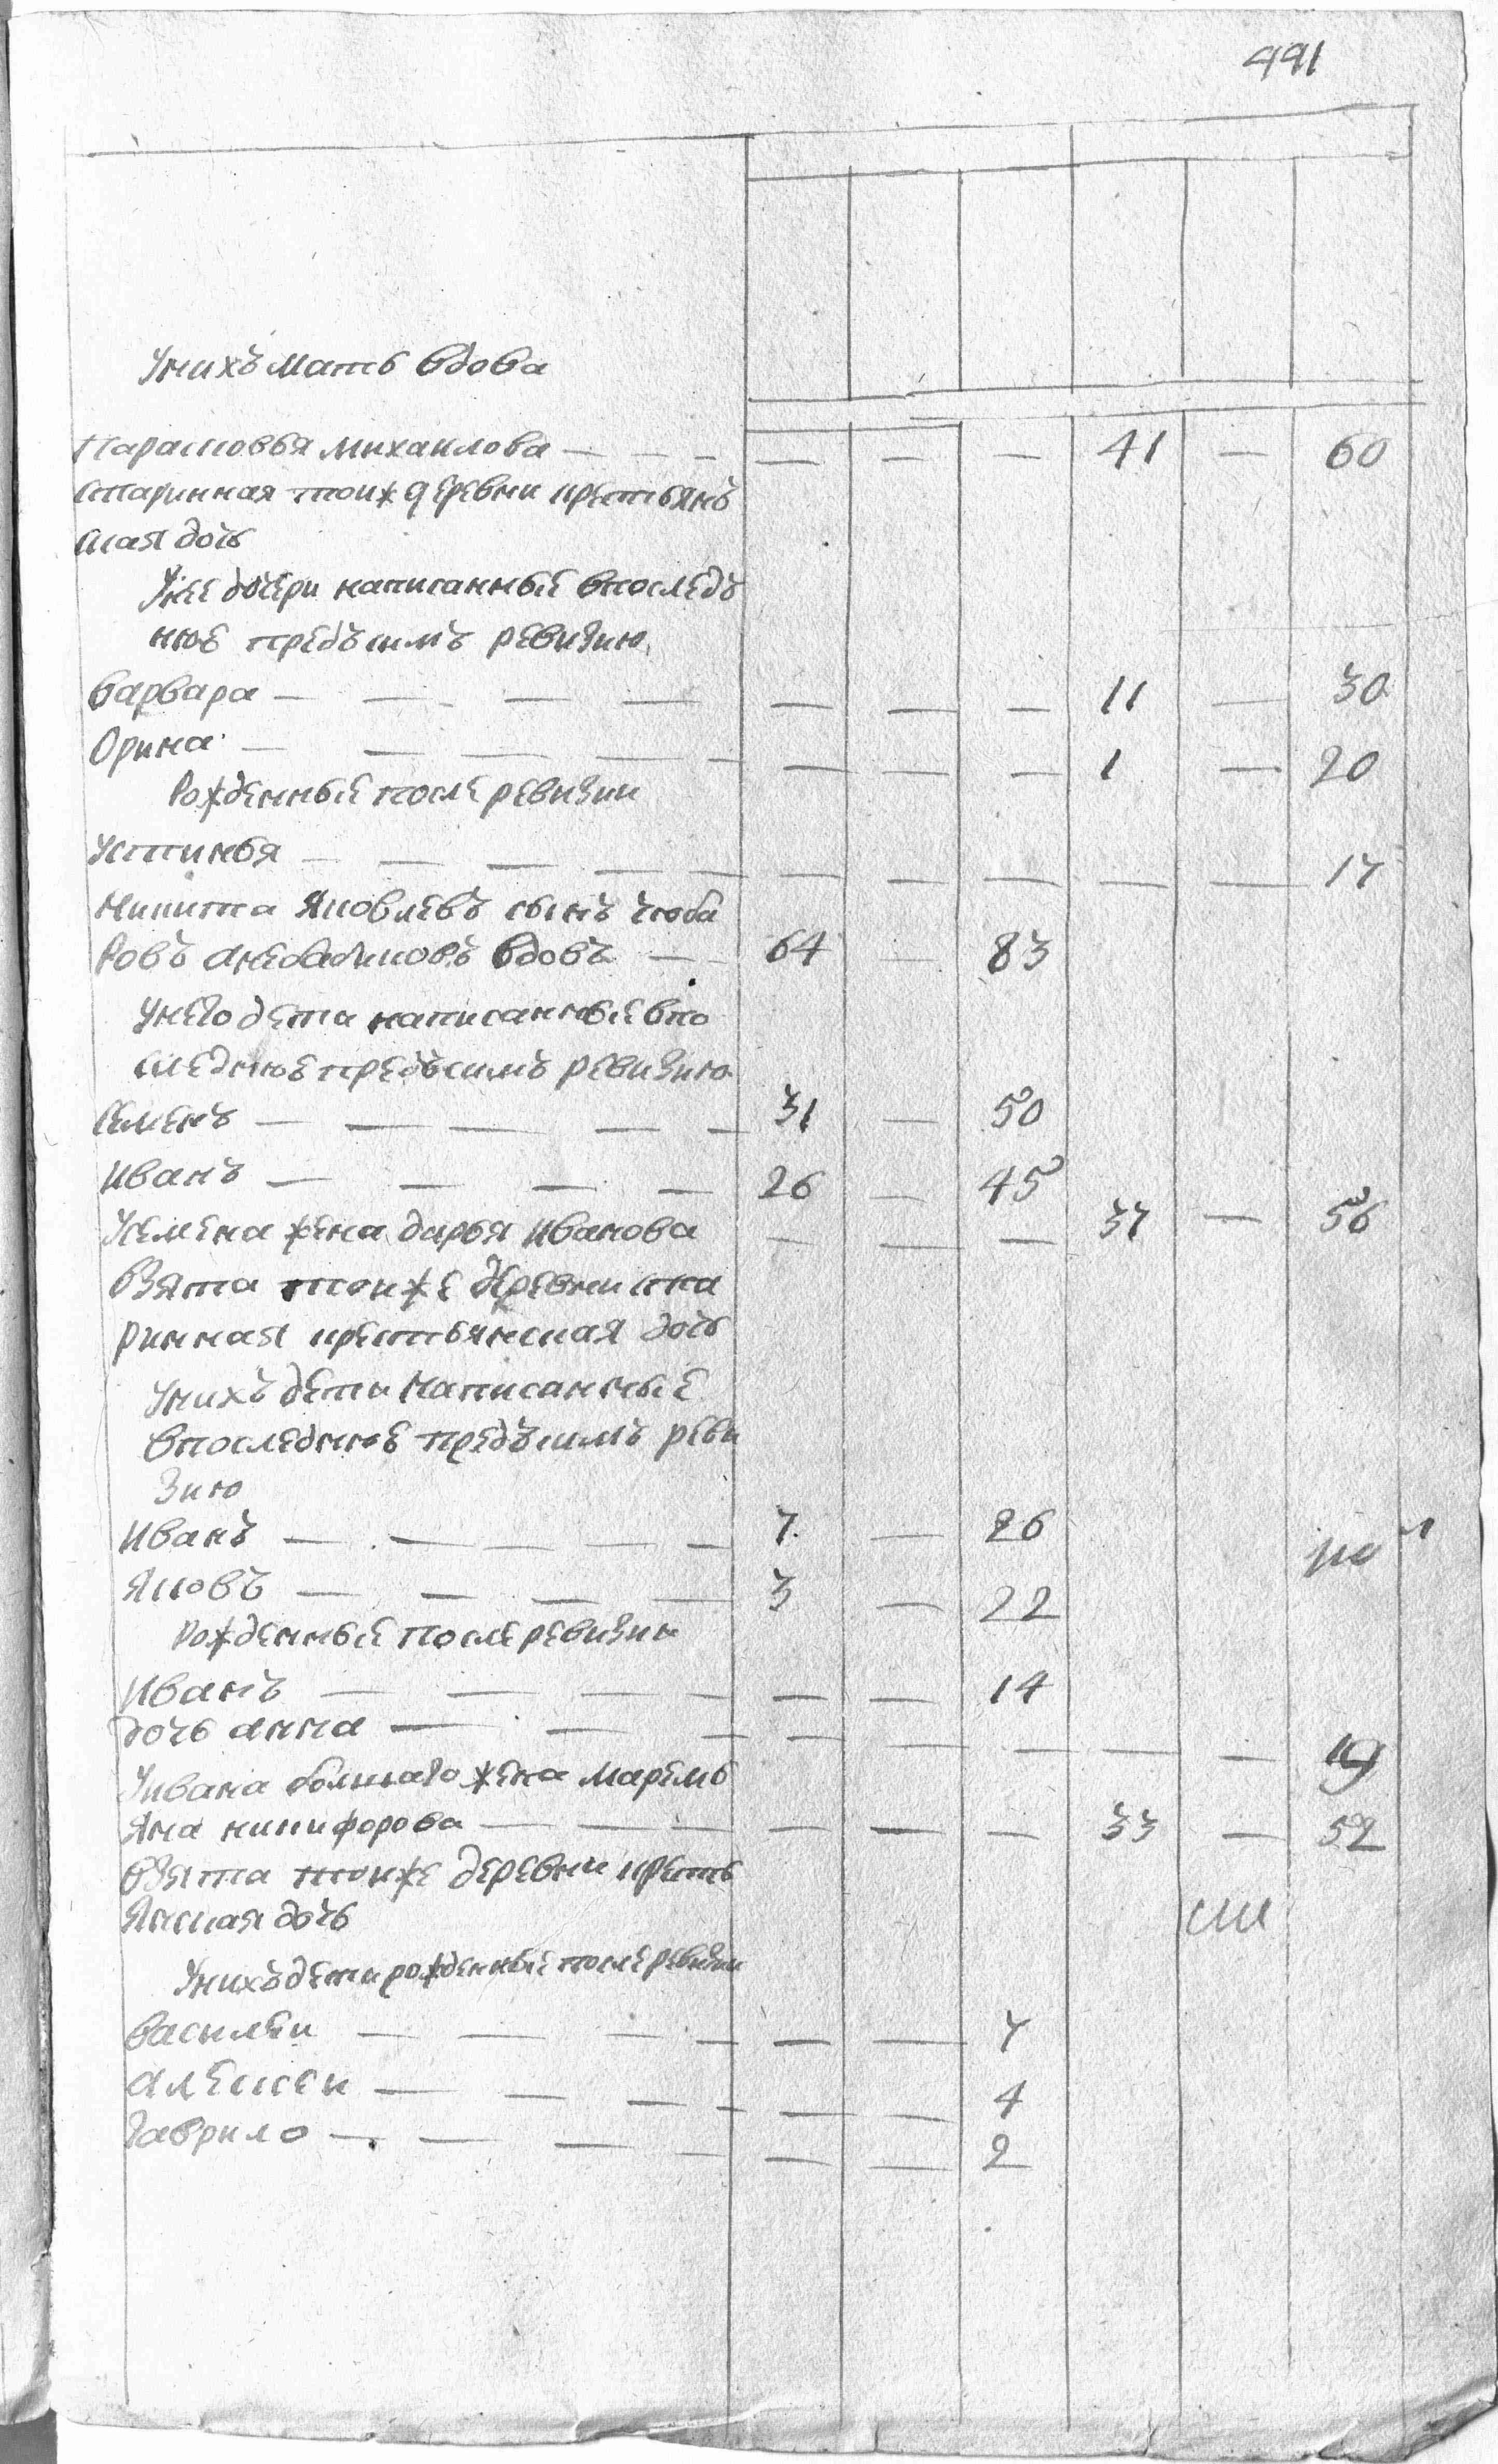 491
Унихъ мать вдова
Парасковья михаилова — — — — — — 41 — 60
старинная тоиж деревни крестьянъ
ская дочь
Унее дочери написанные впоследъ
нюю предъ симъ ревизию
варвара — — — — — — — 11 — 30
Орина — — — — — — — — 1 — 20
Рожденные после ревизии
Устинья — — — — — — — — — — 17
никита Яковлевъ сынъ
ровъ вдовъ — — 64 — 83
Унего дети написанные впо
следнюю предъ симъ ревизию
Семенъ — — — — — 31 — 50
Иванъ — — — — 26 — 45
Усемена жена дарья Иванова — — — 37 — 56
Взята тоиже деревни ста
ринная крестьянская дочь
Унихъ дети написанные
впоследнюю предъ симъ реви
зию
Иванъ — — — — — 7 — 26
Яковъ — — — — 3 — 22
Рожденные после ревизии
Иванъ — — — — — — 14
дочь анна — — — — — — — — 19
Уивана большаго жена маремь
яна никифорова — — — — — — 33 — 52
Взята тоиже деревни кресть
янская дочь
Унихъ дети рожденные после ревизии
василеи — — — — — — 7
алексеи — — — — — — 4
Гаврило — — — — — — 2